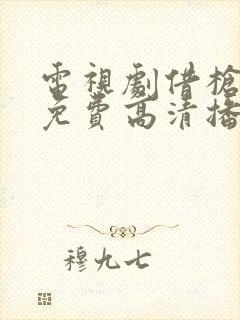 電視劇借槍
免費高清播
穆九七